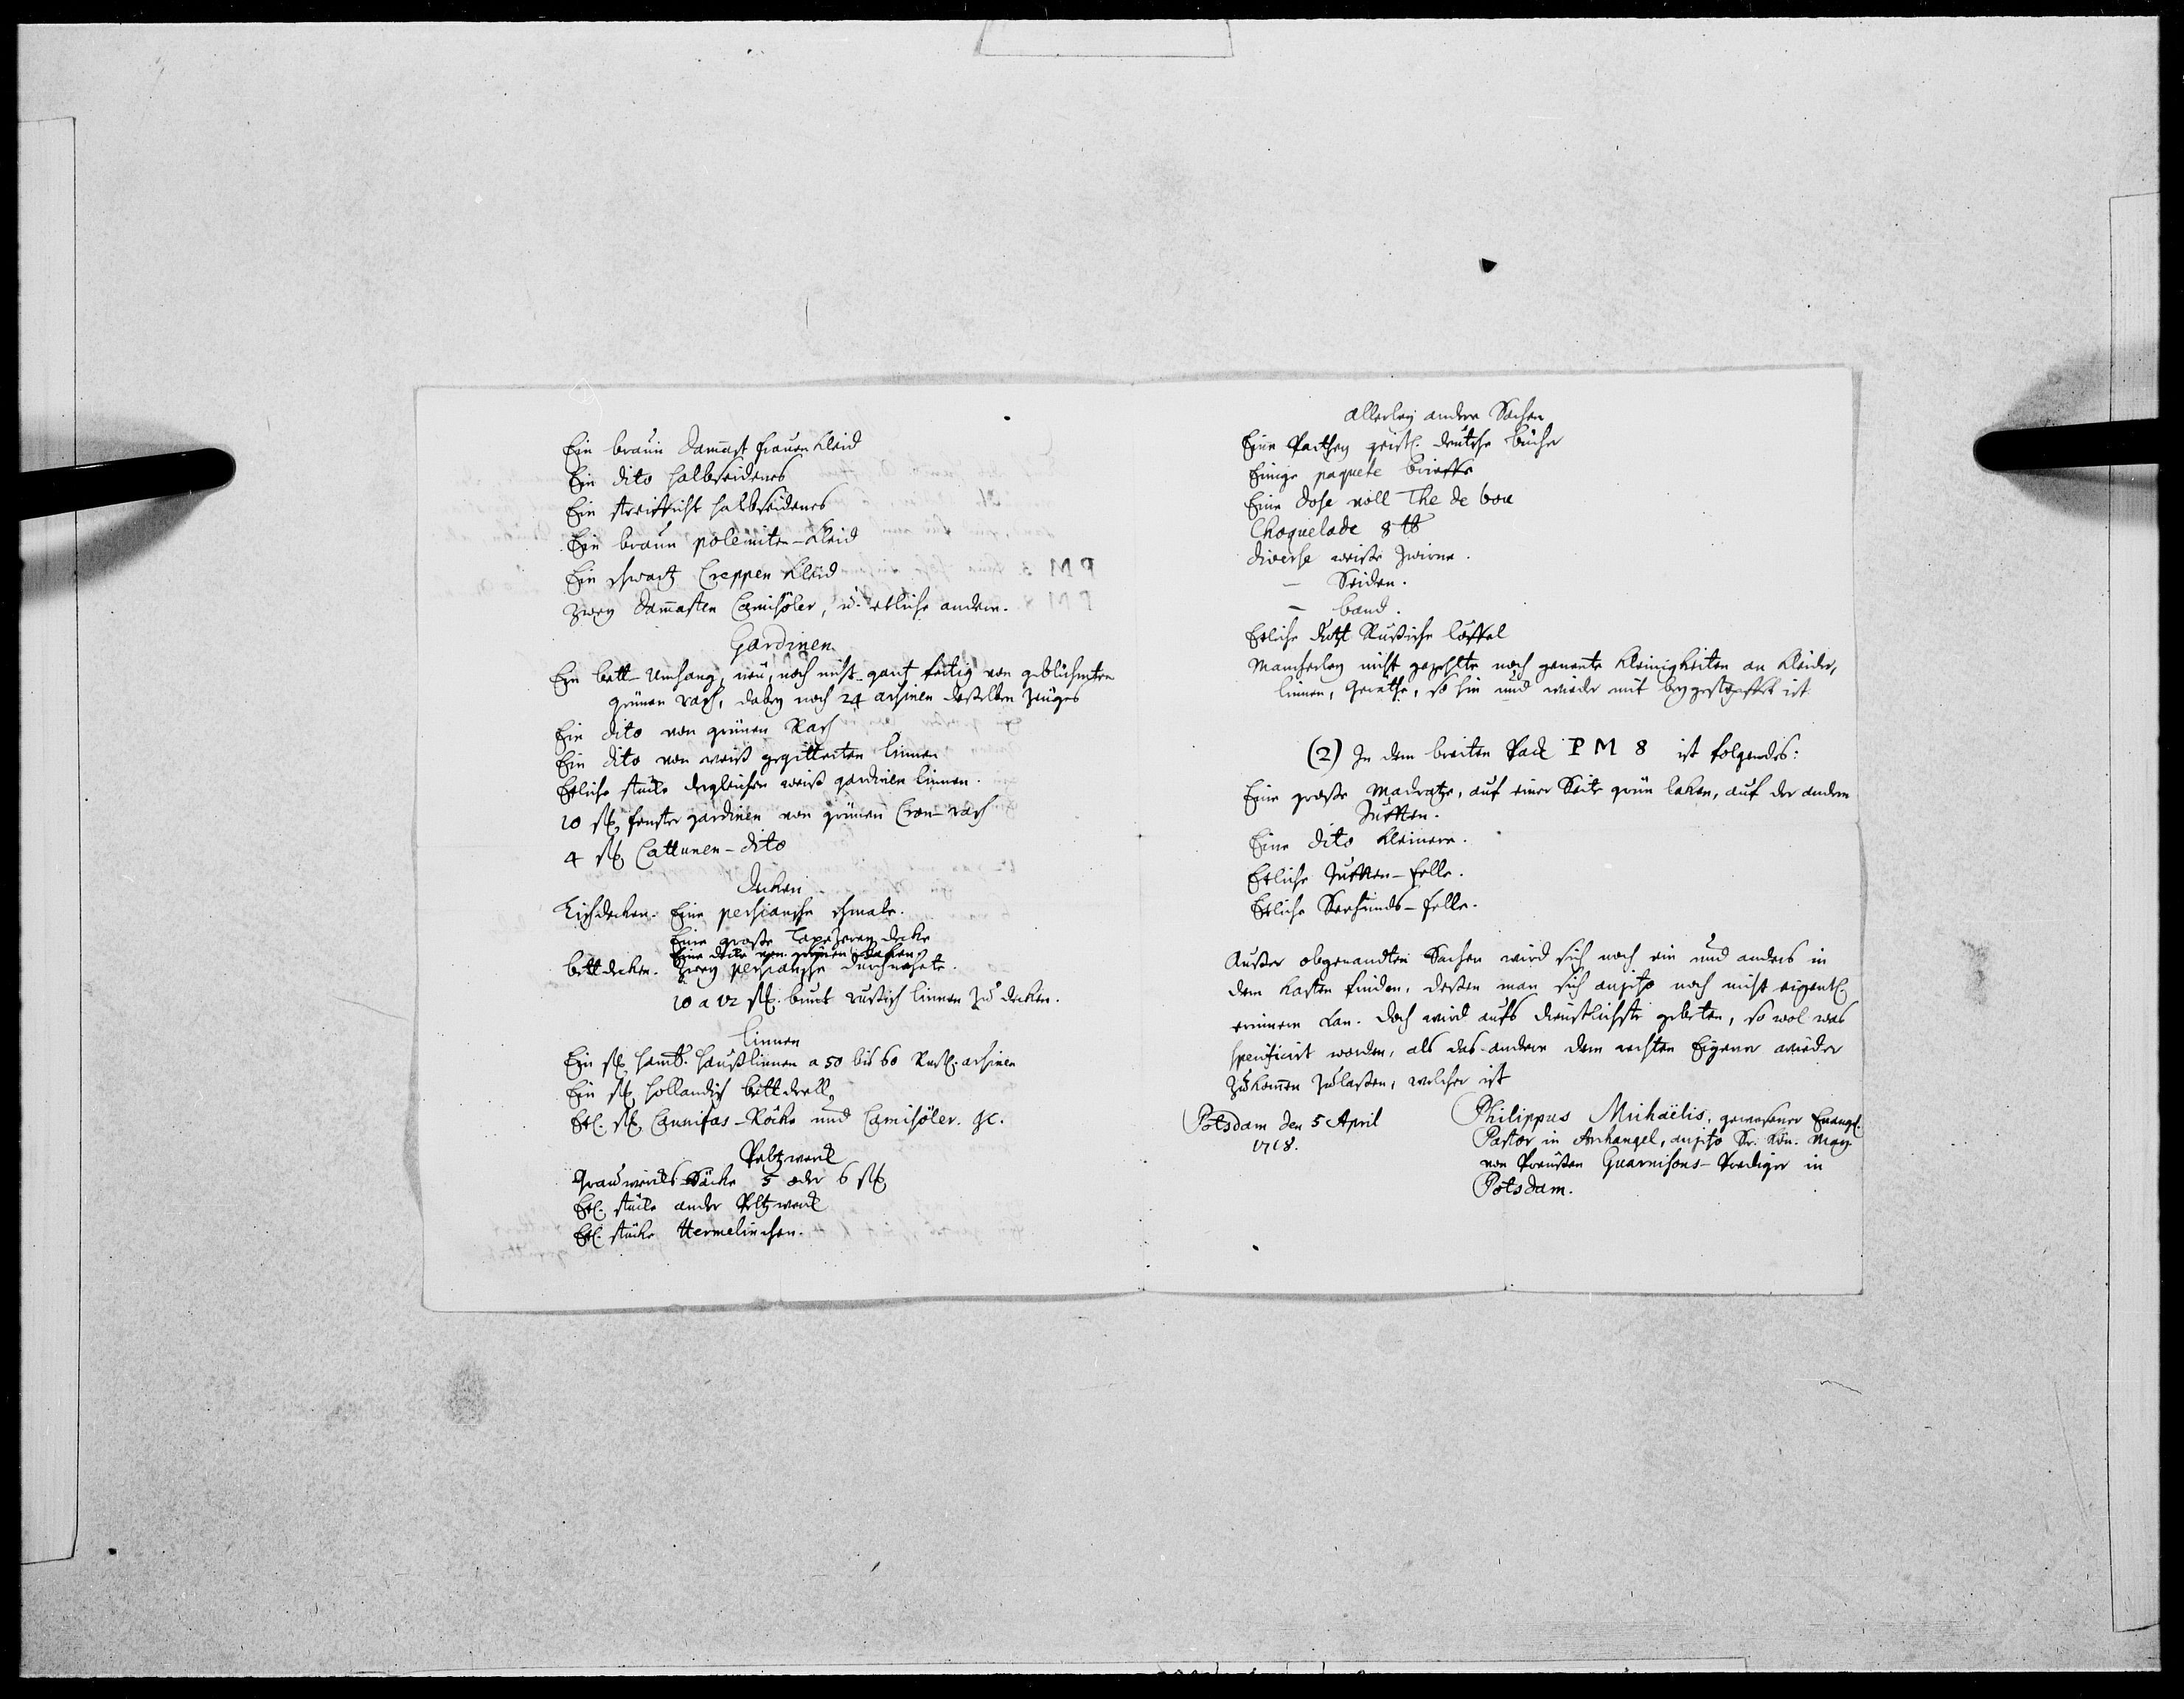 Ein braun Dammast frauen Kleid
Ein dito halbseidenes
Ein streificht halbseidenes
Ein braun polemiten-Kleid
Ein schwartz Creppen Kleid
Zwey Dammasten Camisöler, u. etliche andere.
Gardinen
Ein bett-Umhang, neu, noch nicht gantz fertig von geblühmten
grünen rasch, dabey noch 24 arshinen desselben Zeuges
Ein dito von grünen Rasch
Ein dito von weiß gegitterten linnen
Etliche stücke dergleichen weiß gardinen linnen.
10 stk fenster gardinen von grünen Cron-rasch
4 stk Cattunen-dito
Decken
Tischdecken. Eine persiansche schmale.
Eine große Tapezereyen decke
Eine decke von grünen Laken
bettdecken. Zwey persiansche durchnehete.
10 a 12 stk. bunt rußisch linnen zu decken.
Linnen
Ein stk hamb. haußlinnen a 50 bis 60 Rußl. arshinen
Ein stk holländisch bettdrell
Etl. stk Cannifas-Röcke und Camisöler. &c.
Peltzwerck
Grauwercks-Säcke 5 oder 6 stk
Etl. stücke ander Peltzwerck
Etl. stücke Hermelinchen.
allerley andere Sachen
Eine Parthey geistl. deutsche bücher
Einige paquete brieffe
Eine dose voll The de bou
Choquelade 8 ℔
diverse weiße Zwirne.
— Seiden.
— band.
Etliche dutzt Rußische löffel
Mancherley nicht gezehlte noch genente Kleinigkeiten an Kleider,
linnen, Geräthe, so hin und wieder mit beygestopffet ist
(2) In dem breiten Pack P M 8 ist folgendes:
Eine große Madratze, auf einer Seite grün laken, auf der andern
Juften.
Eine dito kleinere.
Etliche Juften-felle.
Etliche Seehunds-felle.
Außer obgenandten Sachen wird sich noch ein und anders in
dem Kasten finden, deßen man sich anjetzo noch nicht eigentl.
erinnern kan. Doch wird aufs dienstlichste gebeten, so wol was
specificirt worden, als das andere dem rechten Eigener wieder
zukommen zulaßen, welcher ist
Potsdam den 5 April
1718.
Philippus Michaëlis, gewesener Evangl.
Pastor in Archangel, anjetzo Sr. Kön. May.
von Preußen Guarnisons-Prediger in
Potsdam.